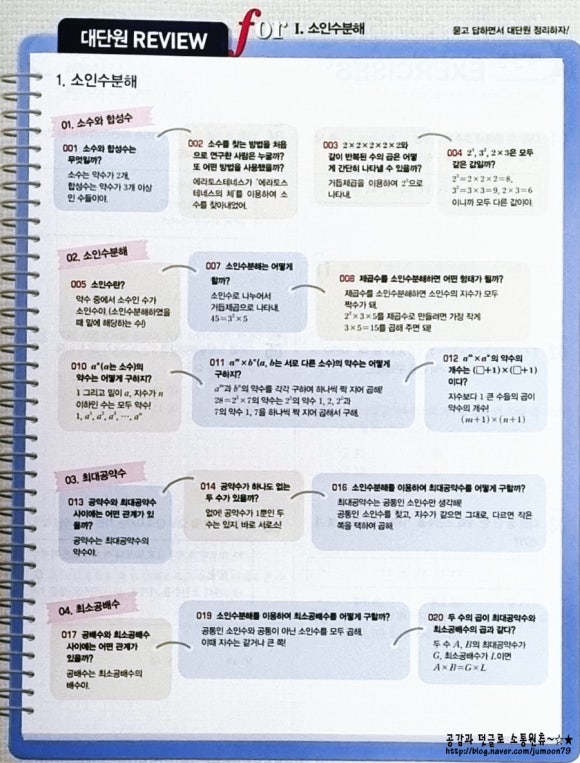 대단원 REVIEW for I. 소인수분해
묻고 답하면서 대단원 정리하자!
1. 소인수분해
01. 소수와 합성수
001 소수와 합성수는
무엇일까?
소수는 약수가 2개,
합성수는 약수가 3개 이상
인 수들이야.
002 소수를 찾는 방법을 처음
으로 연구한 사람은 누굴까?
또 어떤 방법을 사용했을까?
에라토스테네스가 '에라토스
테네스의 체'를 이용하여 소
수를 찾아내었어.
003 2×2×2×2×2와
같이 반복된 수의 곱은 어떻
게 간단히 나타낼 수 있을까?
거듭제곱을 이용하여 2⁵으로
나타내.
004 2³, 3², 2×3은 모두
같은 값일까?
2³=2×2×2=8,
3²=3×3=9, 2×3=6
이니까 모두 다른 값이야.
02. 소인수분해
005 소인수란?
약수 중에서 소수인 수가
소인수야. (소인수분해하였을
때 밑에 해당하는 수!)
007 소인수분해는 어떻게
할까?
소인수로 나누어서
거듭제곱으로 나타내.
45=3²×5
008 제곱수를 소인수분해하면 어떤 형태가 될까?
제곱수를 소인수분해하면 소인수의 지수가 모두
짝수가 돼.
2²×3×5를 제곱수로 만들려면 가장 작게
3×5=15를 곱해 주면 돼!
010 aⁿ(a는 소수)의
약수는 어떻게 구하지?
1 그리고 밑이 a, 지수가 n
이하인 수는 모두 약수!
1, a¹, a², a³, ⋯, aⁿ
011 aᵐ×bⁿ(a, b는 서로 다른 소수)의 약수는 어떻게
구하지?
aᵐ과 bⁿ의 약수를 각각 구하여 하나씩 짝 지어 곱해!
28=2²×7의 약수는 2²의 약수 1, 2, 2²과
7의 약수 1, 7을 하나씩 짝 지어 곱해서 구해.
012 aᵐ×aⁿ의 약수의
개수는 (□+1)×(□+1)
이다?
지수보다 1 큰 수들의 곱이
약수의 개수!
(m+1)×(n+1)
03. 최대공약수
013 공약수와 최대공약수
사이에는 어떤 관계가 있
을까?
공약수는 최대공약수의
약수야.
014 공약수가 하나도 없는
두 수가 있을까?
없어! 공약수가 1뿐인 두
수는 있지. 바로 서로소!
016 소인수분해를 이용하여 최대공약수를 어떻게 구할까?
최대공약수는 공통인 소인수만 생각해!
공통인 소인수를 찾고, 지수가 같으면 그대로, 다르면 작은
쪽을 택하여 곱해.
04. 최소공배수
017 공배수와 최소공배수
사이에는 어떤 관계가
있을까?
공배수는 최소공배수의
배수야.
019 소인수분해를 이용하여 최소공배수를 어떻게 구할까?
공통인 소인수와 공통이 아닌 소인수를 모두 곱해.
이때 지수는 같거나 큰 쪽!
020 두 수의 곱이 최대공약수와
최소공배수의 곱과 같다?
두 수 A, B의 최대공약수가
G, 최소공배수가 L이면
A×B=G×L
공감과 덧글로 소통원츄~☆★
http://blog.naver.com/jumoon79